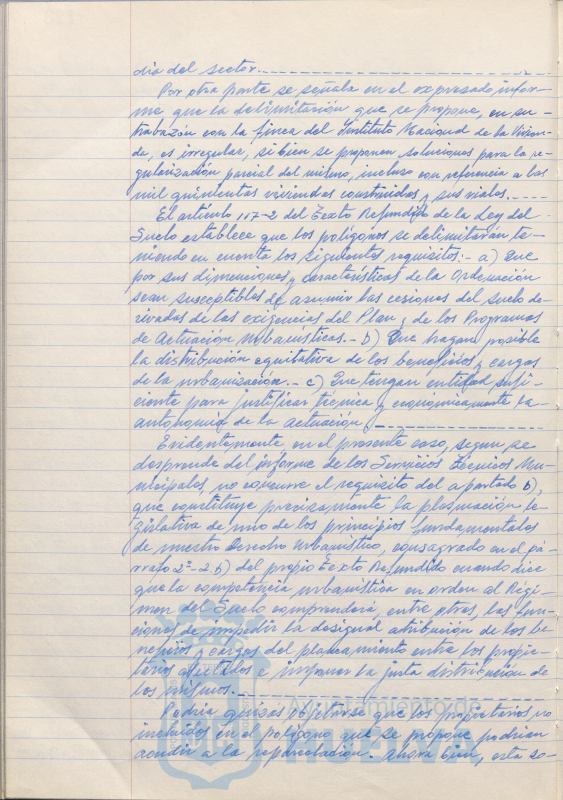 dio del sector.
Por otra parte se señala en el expresado infor-
me que la delimitación que se propone, en su
trabazón con la finca del Instituto Nacional de la Vivien-
da, es irregular, si bien se proponen soluciones para la re-
gularización parcial del mismo, incluso con referencia a las
mil quinientas viviendas construidas y sus viales.
El artículo 117-2 del Texto Refundido de la Ley del
Suelo establece que los polígonos se delimitarán te-
niendo en cuenta los siguientes requisitos:- a) Que
por sus dimensiones y características de la Ordenación
sean susceptibles de asumir las cesiones del suelo de-
rivadas de las exigencias del Plan y de los Programas
de Actuación Urbanísticas.- b) Que hagan posible
la distribución equitativa de los beneficios y cargas
de la urbanización.- c) Que tengan entidad sufi-
ciente para justificar técnica y económicamente la
autonomía de la actuación
Evidentemente en el presente caso, según se
desprende del informe de los Servicios Técnicos Mu-
nicipales, no concurre el requisito del apartado b),
que constituye precisamente la plasmación le-
gislativa de uno de los principios fundamentales
de nuestro Derecho Urbanístico, consagrado en el pá-
rrafo 2º-2 b) del propio Texto Refundido cuando dice
que la competencia urbanística en orden al Régi-
men del Suelo comprenderá, entre otras, las fun-
ciones de impedir la desigual atribución de los be-
neficios y cargas del planeamiento entre los propie-
tarios afectados e imponer la justa distribución de
los mismos.
Podría quizás objetarse que los propietarios no
incluidos en el polígono que se propone podrían
acudir a la reparcelación. Ahora bien, esta so-
Ayuntamiento de
HUELVA